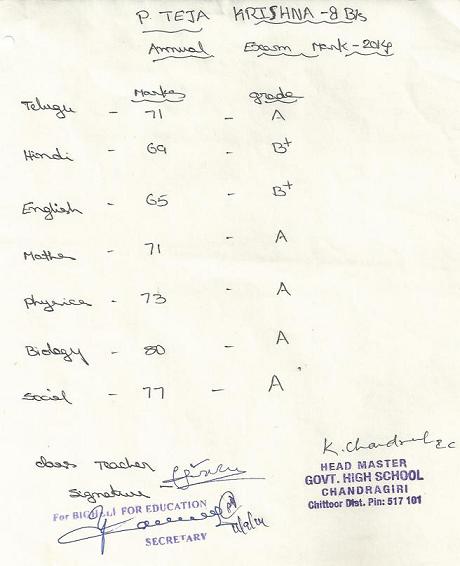 P. TEJA KRISHNA - 8 B/s
Annual Exam Mark - 2014
Marks grade
Telugu - 71 - A
Hindi - 69 - B+
English - 65 - B+
Maths - 71 - A
Physics - 73 - A
Biology - 80 - A
Social - 77 - A
class Teacher
Signature
K. Chandra
HEAD MASTER
GOVT. HIGH SCHOOL
CHANDRAGIRI
Chittoor Dist. Pin: 517 101
For FOR EDUCATION
SECRETARY